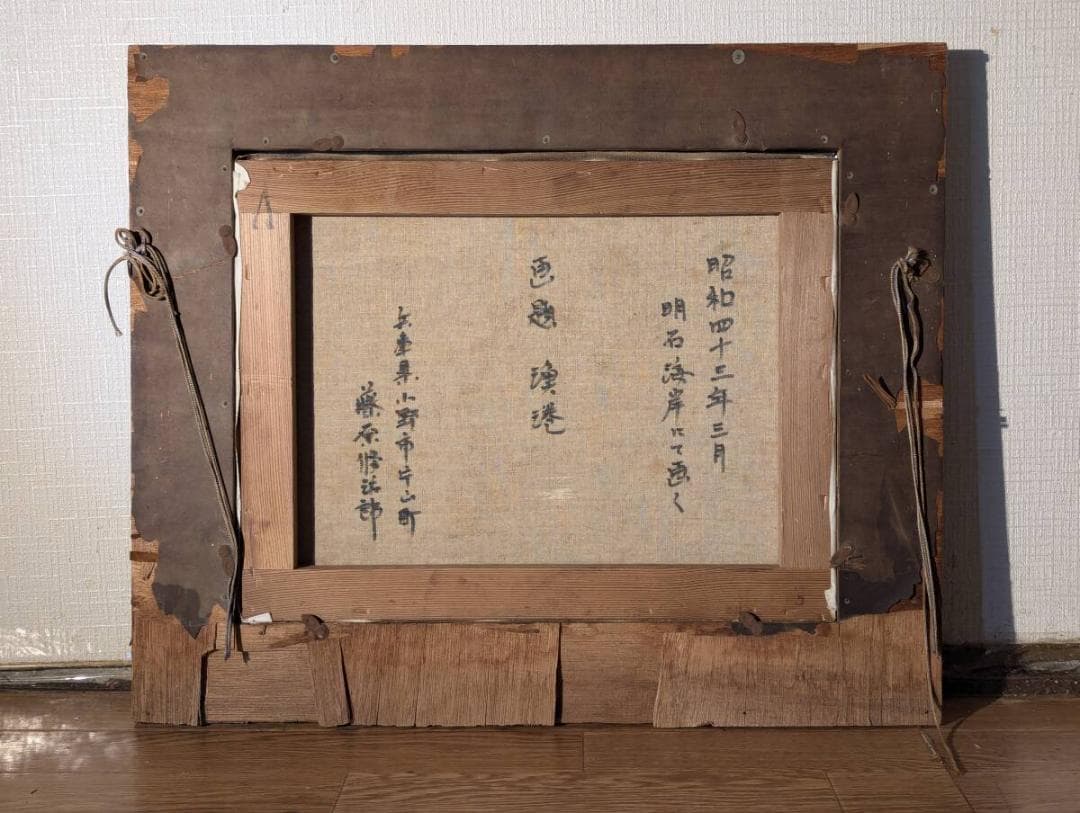 昭和四十三年三月
明石海岸にて画く
画題 漁港
兵庫県小野市片山町
藤原修